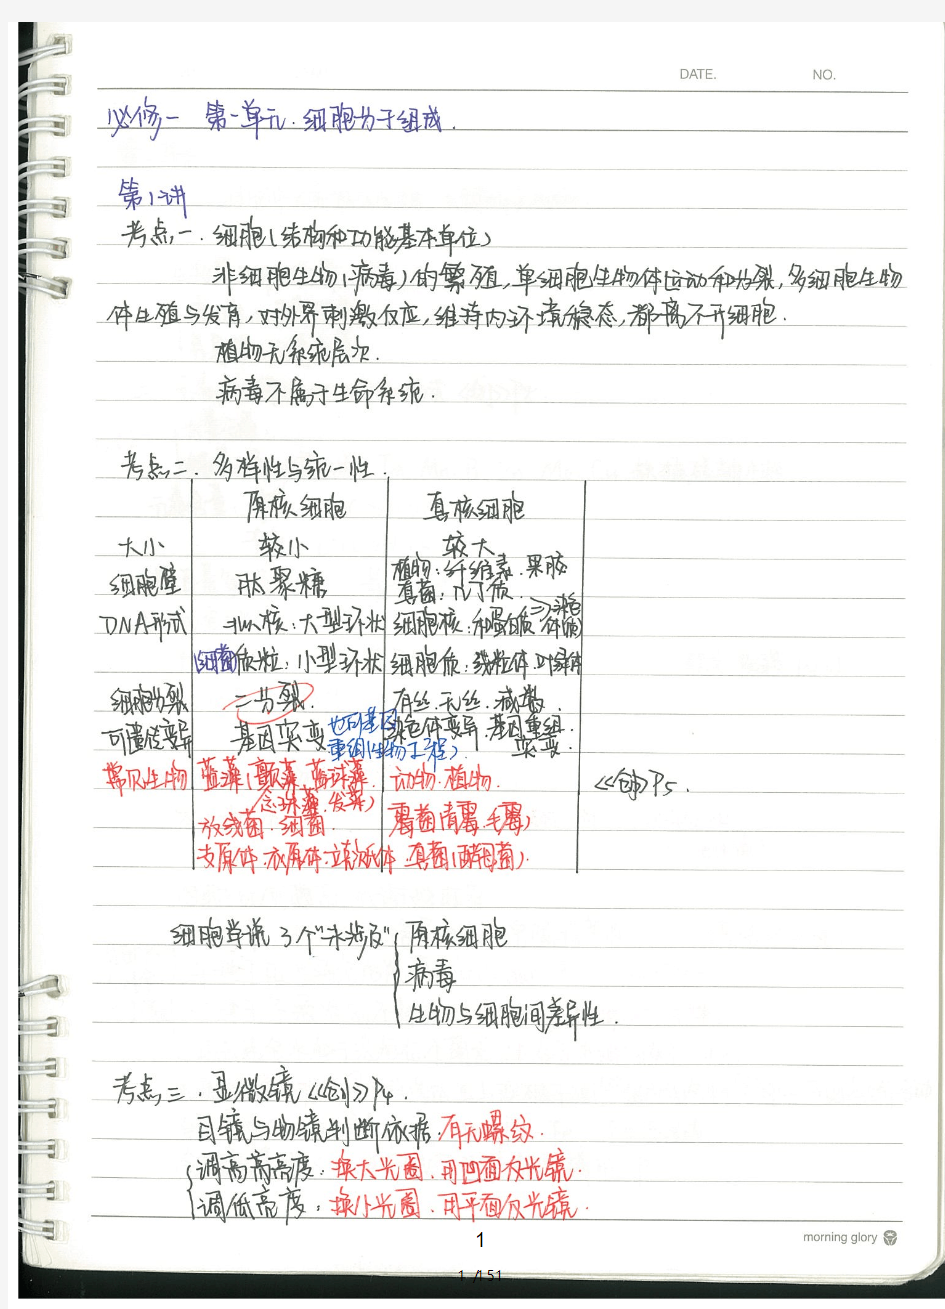 DATE. NO.
必修一 第一单元.细胞分子组成.
第1讲
考点一.细胞(结构和功能基本单位)
非细胞生物(病毒)的繁殖,单细胞生物体运动和分裂,多细胞生物
体生殖与发育,对外界刺激反应,维持内环境稳态,都离不开细胞.
植物无系统层次.
病毒不属于生命系统.
考点二.多样性与统一性.
原核细胞 真核细胞
大小 较小 较大
细胞壁 肽聚糖 植物:纤维素.果胶
真菌:几丁质.
DNA形式 拟核:大型环状 细胞核:和蛋白质=>染色体(质)
(细菌)质粒:小型环状 细胞质:线粒体.叶绿体
细胞分裂 二分裂. 有丝.无丝.减数.
可遗传变异 基因突变 也可基因重组(生物工程) 染色体变异.基因重组.突变.
常见生物 蓝藻(颤藻.蓝球藻.念珠藻.发菜) 动物.植物. 《创》P5.
放线菌.细菌. 霉菌(青霉.毛霉)
支原体.衣原体.立克次氏体. 真菌(酵母菌).
细胞学说3个"未涉及" 原核细胞
病毒
生物与细胞间差异性.
考点三.显微镜《创》P4.
目镜与物镜判断依据:有无螺纹.
调高亮度:换大光圈.用凹面反光镜.
调低亮度:换小光圈.用平面反光镜.
1
morning glory
1 / 151